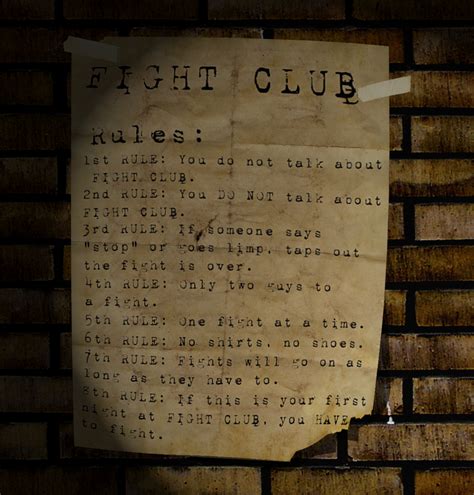 FIGHT CLUB
Rules:
1st RULE: You do not talk about
FIGHT CLUB.
2nd RULE: You DO NOT talk about
FIGHT CLUB.
3rd RULE: If someone says
"stop" or goes limp, taps out
the fight is over.
4th RULE: Only two guys to
a fight.
5th RULE: One fight at a time.
6th RULE: No shirts, no shoes.
7th RULE: Fights will go on as
long as they have to.
8th RULE: If this is your first
night at FIGHT CLUB, you HAVE
to fight.